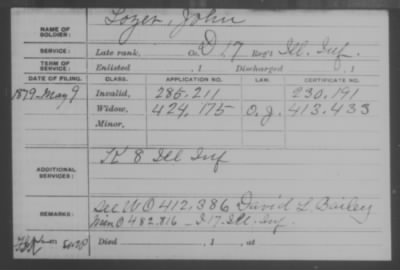 NAME OF SOLDIER: Lozer, John
SERVICE: Late rank, Co. D, 17 Reg't Ill. Inf.
TERM OF SERVICE: Enlisted , 1 Discharged , 1
DATE OF FILING. CLASS. APPLICATION NO. LAW. CERTIFICATE NO.
1879 May 9 Invalid, 285.211 230.191
Widow, 424.175 O.J. 413.433
Minor,
ADDITIONAL SERVICES: K 8 Ill Inf
REMARKS: See WO 412.386 David L Bailey
Min O 482.816 - I 17 Ill. Inf.
Died , 1 , at